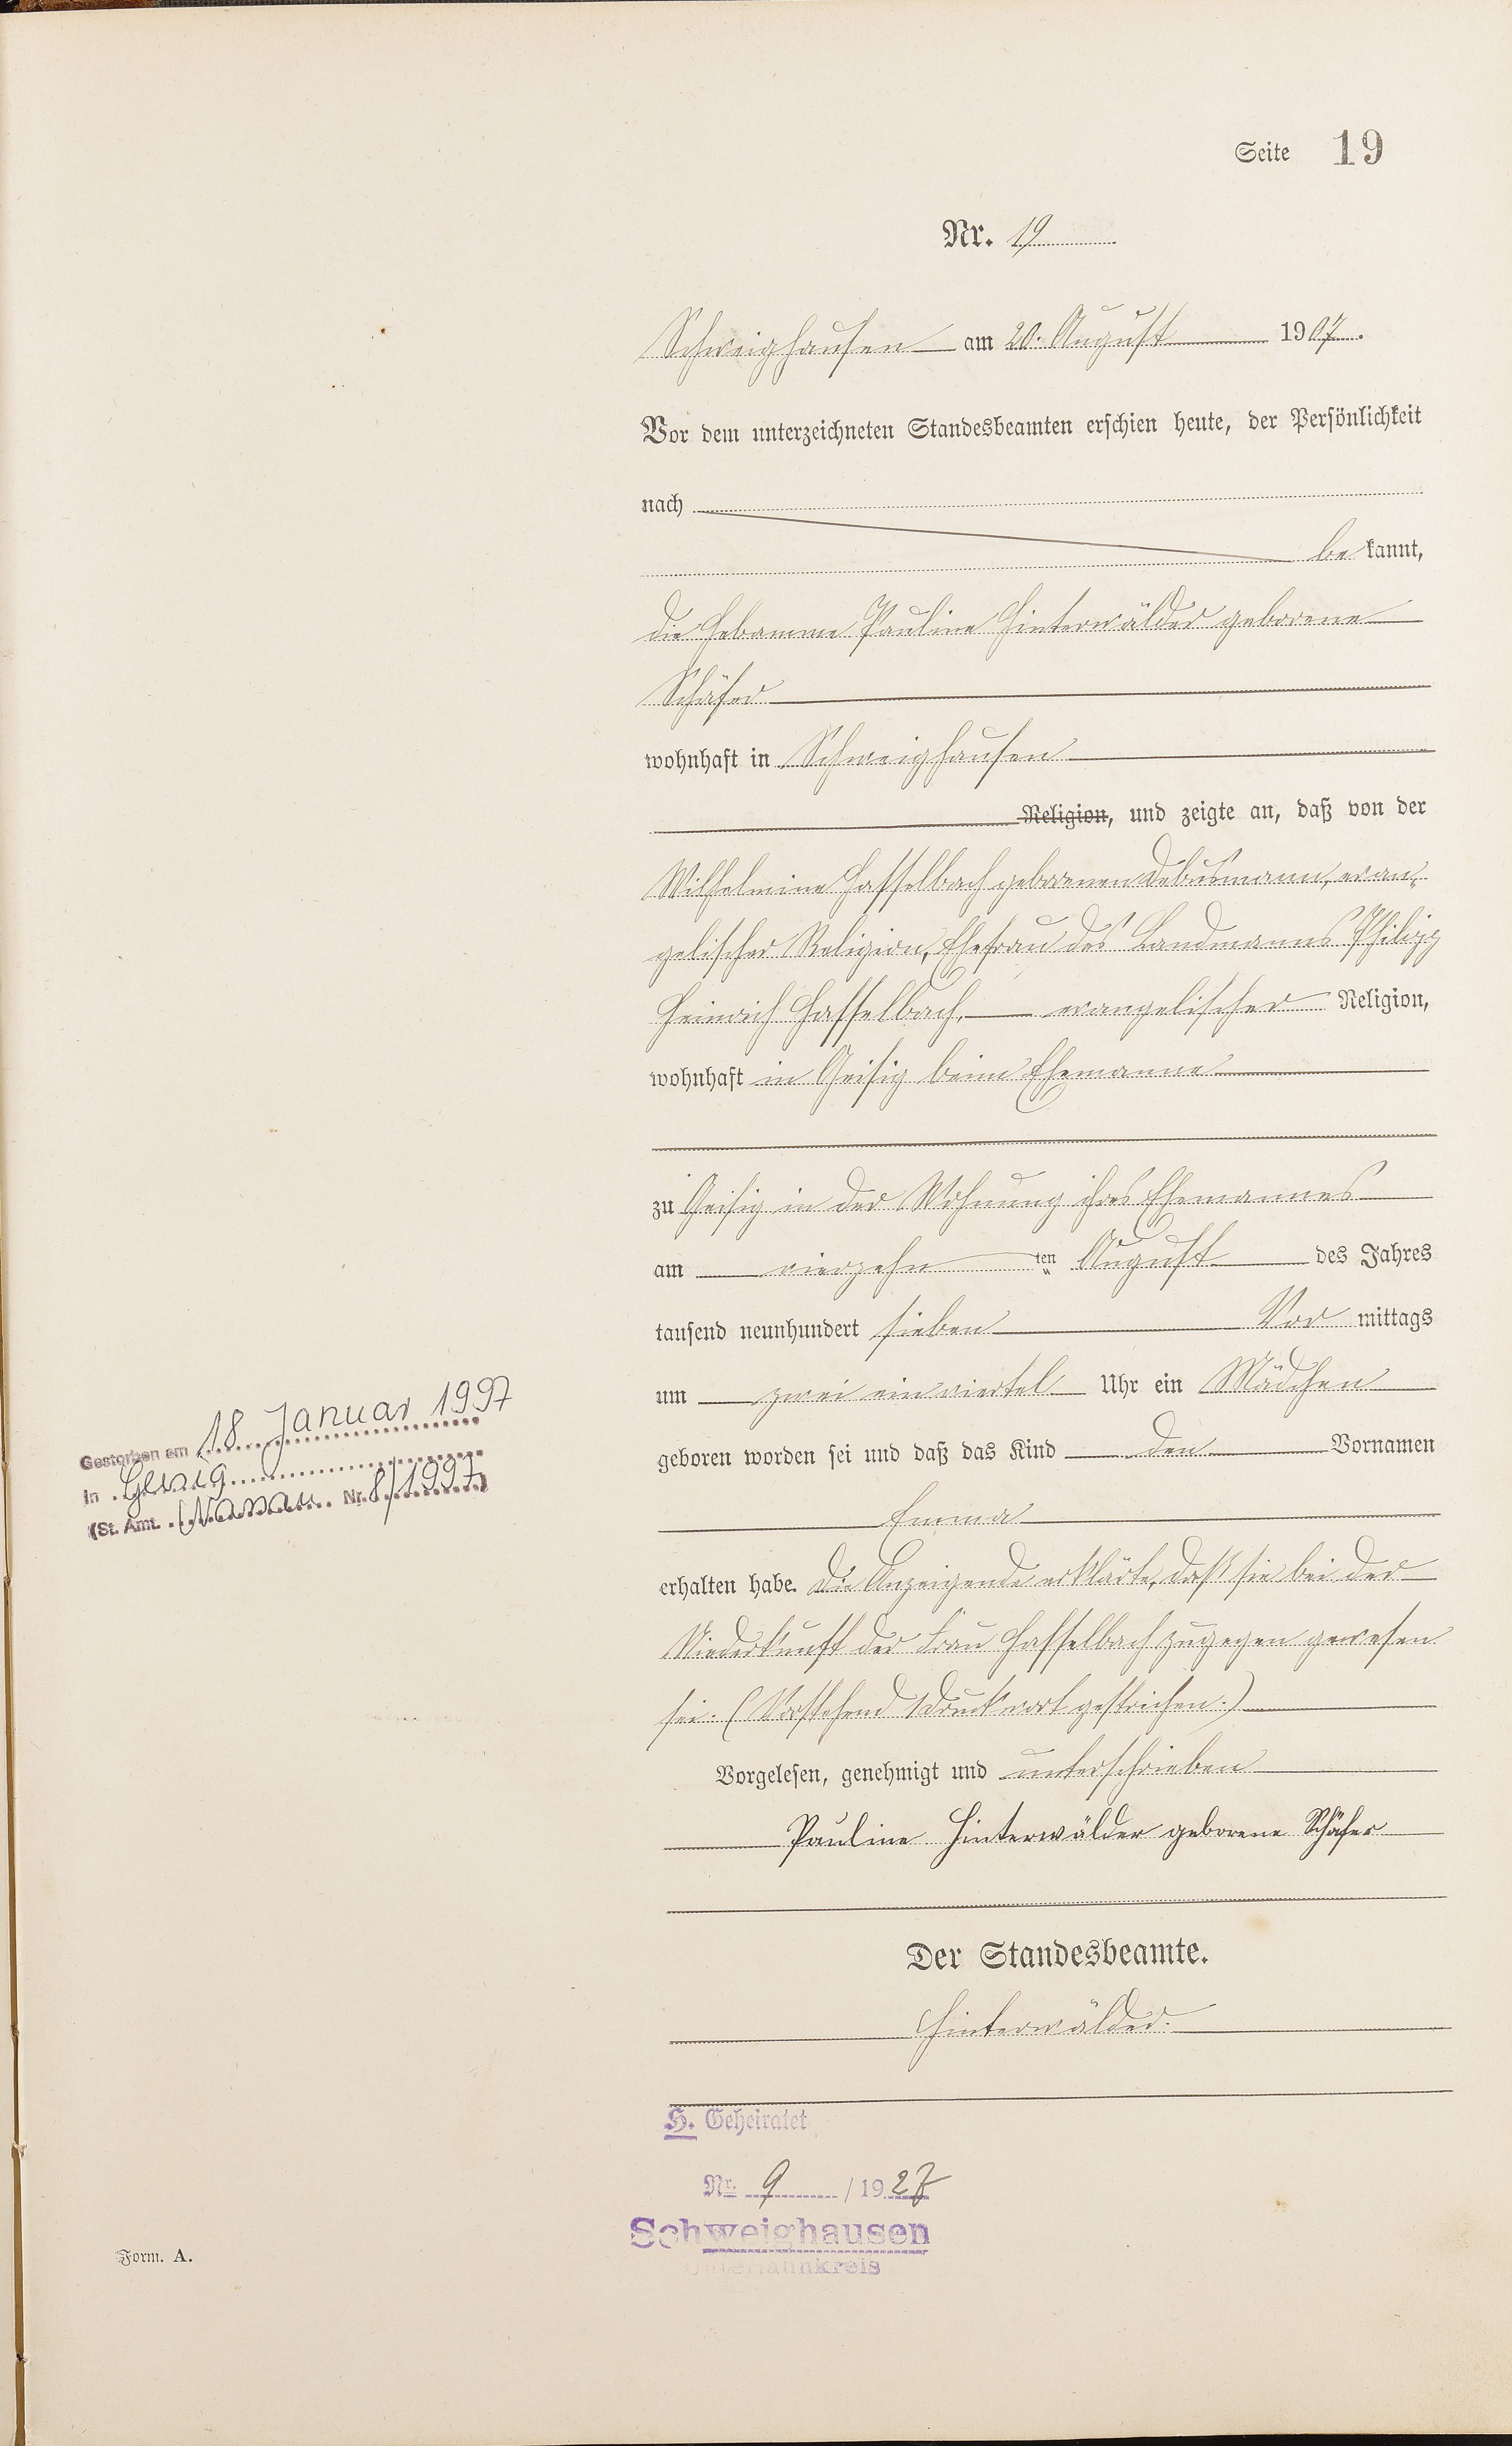 Seite 19
Nr. 19
Schweighausen am 20. August 1907.
Vor dem unterzeichneten Standesbeamten erschien heute, der Persönlichkeit
nach
be kannt,
die Hebamme Pauline Hinterwälder geborene
Schäfer
wohnhaft in Schweighausen
Religion, und zeigte an, daß von der
Wilhelmine Hasselbach geborenen Debusmann, evan-
gelischer Religion, Ehefrau des Landmanns Philipp
Heinrich Hasselbach, evangelischer Religion,
wohnhaft in Geisig beim Ehemanne
zu Geisig in der Wohnung ihres Ehemannes
am vierzehn ten August des Jahres
tausend neunhundert sieben Vor mittags
um zwei einviertel Uhr ein Mädchen
geboren worden sei und daß das Kind den Vornamen
Emma
erhalten habe. Die Anzeigende erklärte, daß sie bei der
Niederkunft der Frau Hasselbach zugegen gewesen
sei. (Vorstehend 1 Druckwort gestrichen.)
Vorgelesen, genehmigt und unterschrieben
Pauline Hinterwälder geborene Schäfer
Der Standesbeamte.
Hinterwälder.
H. Geheiratet
Nr. 9 / 1927
Schweighausen
Unterlahnkreis
Gestorben am 18. Januar 1997
in Geisig
(St. Amt. Nassau Nr. 8/1997)
Form. A.